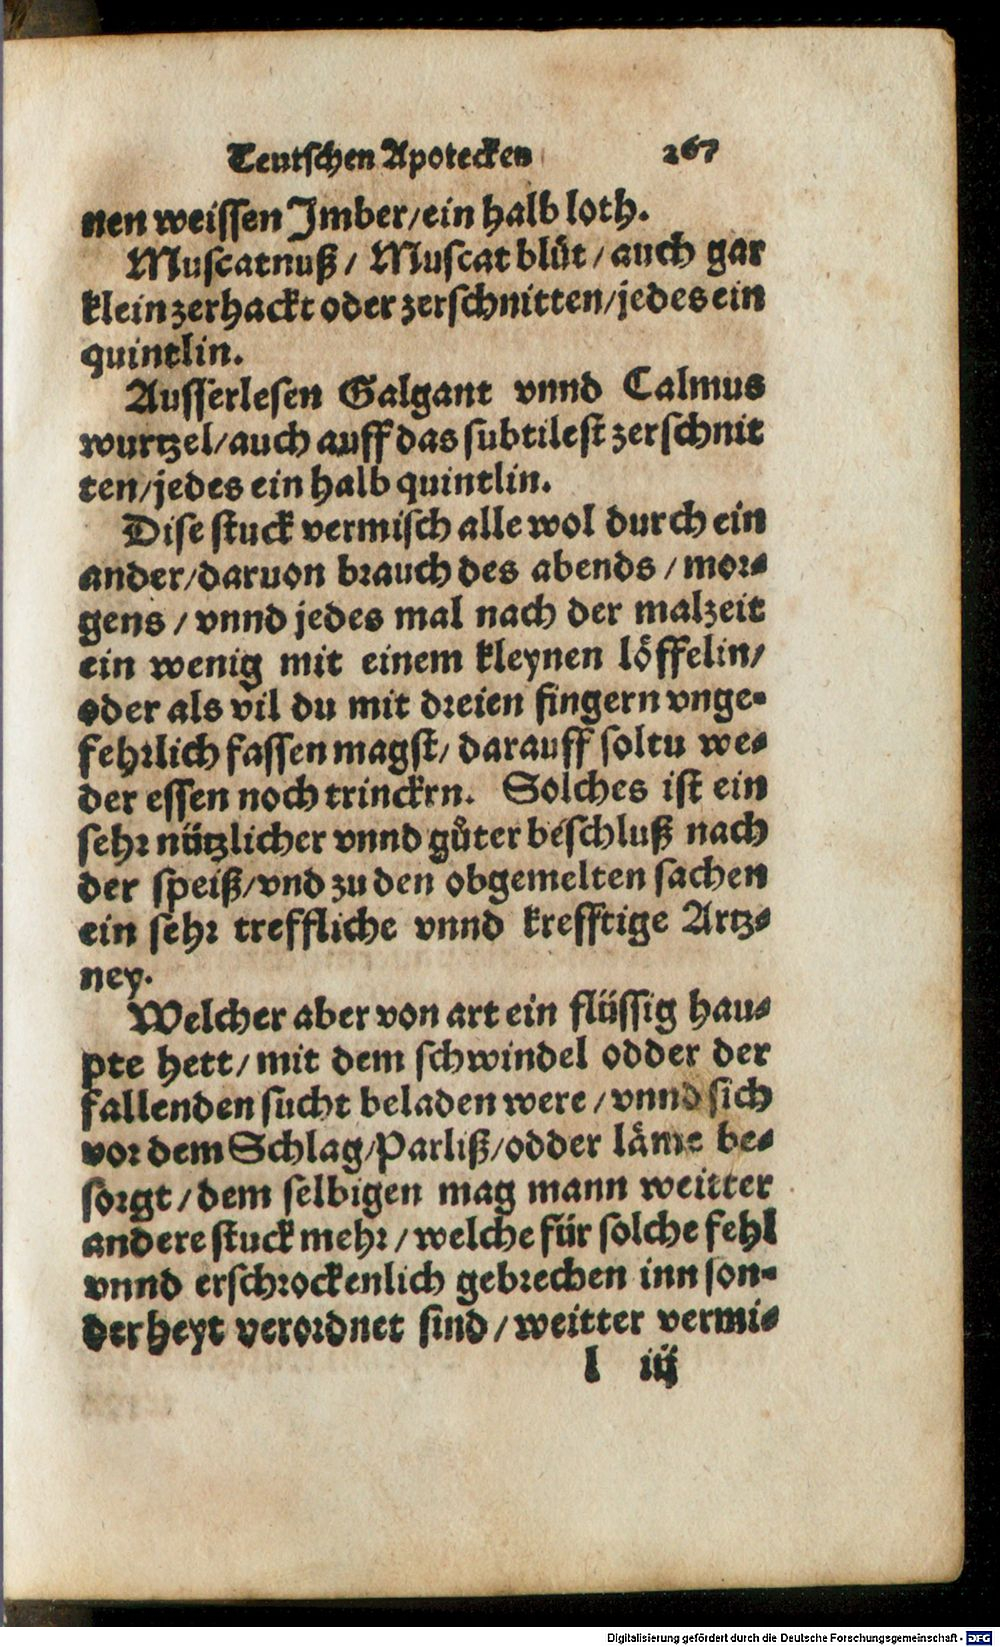 Teutschen Apotecken 267
nen weissen Jmber/ein halb loth.
Muscatnuß/ Muscat blüt/auch gar
klein zerhackt oder zerschnitten/jedes ein
quintlin.
Ausserlesen Galgant vnnd Calmus
wurtzel/auch auff das subtilest zerschnit
ten/jedes ein halb quintlin.
Dise stuck vermisch alle wol durch ein
ander/daruon brauch des abends/mor⸗
gens/vnnd jedes mal nach der malzeit
ein wenig mit einem kleynen löffelin/
oder als vil du mit dreien fingern vnge⸗
fehrlich fassen magst/darauff soltu we⸗
der essen noch trinckrn. Solches ist ein
sehr nützlicher vnnd gůter beschluß nach
der speiß/vnd zu den obgemelten sachen
ein sehr treffliche vnnd krefftige Artz⸗
ney.
Welcher aber von art ein flüssig hau⸗
pte hett/mit dem schwindel odder der
fallenden sucht beladen were/vnnd sich
vor dem Schlag/Parliß/odder läme be⸗
sorgt/dem selbigen mag mann weitter
andere stuck mehr/welche für solche fehl
vnnd erschrockenlich gebrechen inn son⸗
derheyt verordnet sind/weitter vermi⸗
l iij
Digitalisierung gefördert durch die Deutsche Forschungsgemeinschaft - DFG